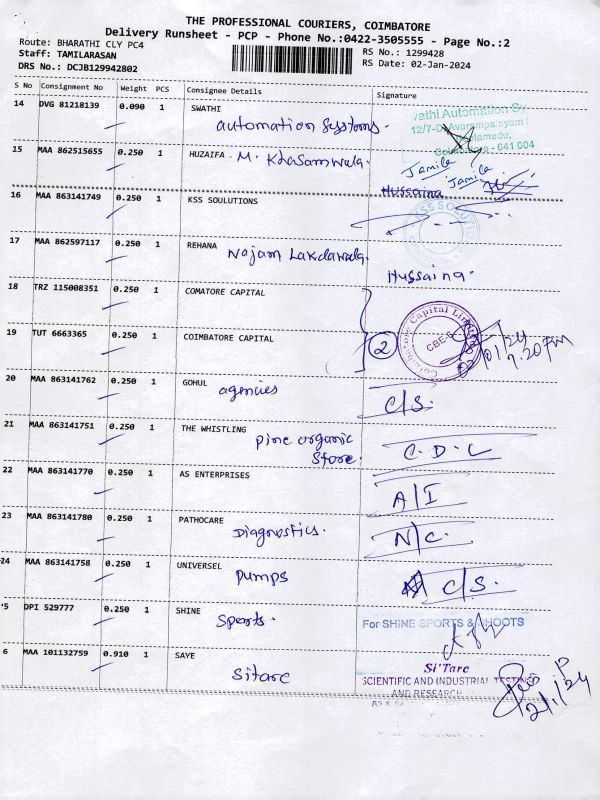 THE PROFESSIONAL COURIERS, COIMBATORE
Delivery Runsheet - PCP - Phone No.:0422-3505555 - Page No.:2
Route: BHARATHI CLY PC4
RS No.: 1299428
Staff: TAMILARASAN
RS Date: 02-Jan-2024
DRS No.: DCJB129942802
S No Consignment No Weight PCS Consignee Details Signature
14 DVG 81218139 0.090 1 SWATHI
automation systems.
Automation Sy
12/7-D
641 004
15 MAA 862515655 0.250 1 HUZAIFA. M. Khasamwala.
Jamila
Hussaina Jamila
16 MAA 863141749 0.250 1 KSS SOULUTIONS
KSS SOLUTION
17 MAA 862597117 0.250 1 REHANA
Najam Lakdawala.
Hussaina.
18 TRZ 115008351 0.250 1 COMATORE CAPITAL
19 TUT 6663365 0.250 1 COIMBATORE CAPITAL
2
Coimbatore Capital Limited
CBE-6
01/24
7.20 PM
20 MAA 863141762 0.250 1 GOHUL
agencies
C/S.
21 MAA 863141751 0.250 1 THE WHISTLING
pine organic
Store.
C.D.L
22 MAA 863141770 0.250 1 AS ENTERPRISES
A/I
23 MAA 863141780 0.250 1 PATHOCARE
Diagnostics.
N/C.
24 MAA 863141758 0.250 1 UNIVERSEL
Pumps
C/S.
5 DPI 529777 0.250 1 SHINE
Sports.
For SHINE SPORTS & SHOOTS
6 MAA 101132759 0.910 1 SAYE
Sitarc
Si'Tarc
SCIENTIFIC AND INDUSTRIAL TESTING
AND RESEARCH
2/1/24